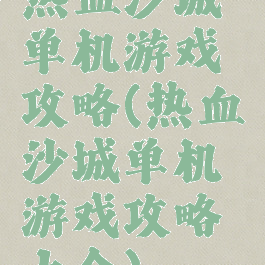 热血沙城
单机游戏
攻略(热血
沙城单机
游戏攻略
大全)